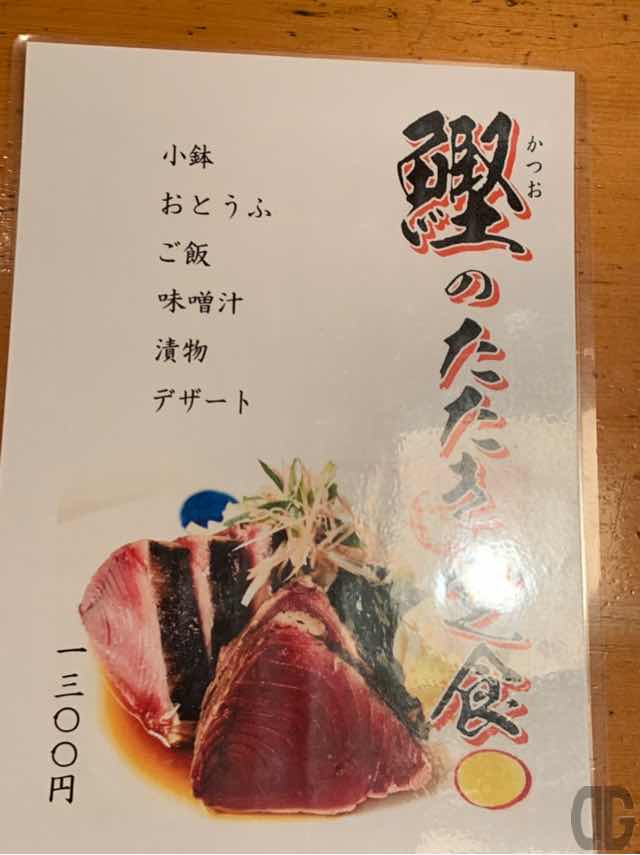 鰹のたたき定食
かつお
小鉢
おとうふ
ご飯
味噌汁
漬物
デザート
一三〇〇円
DG